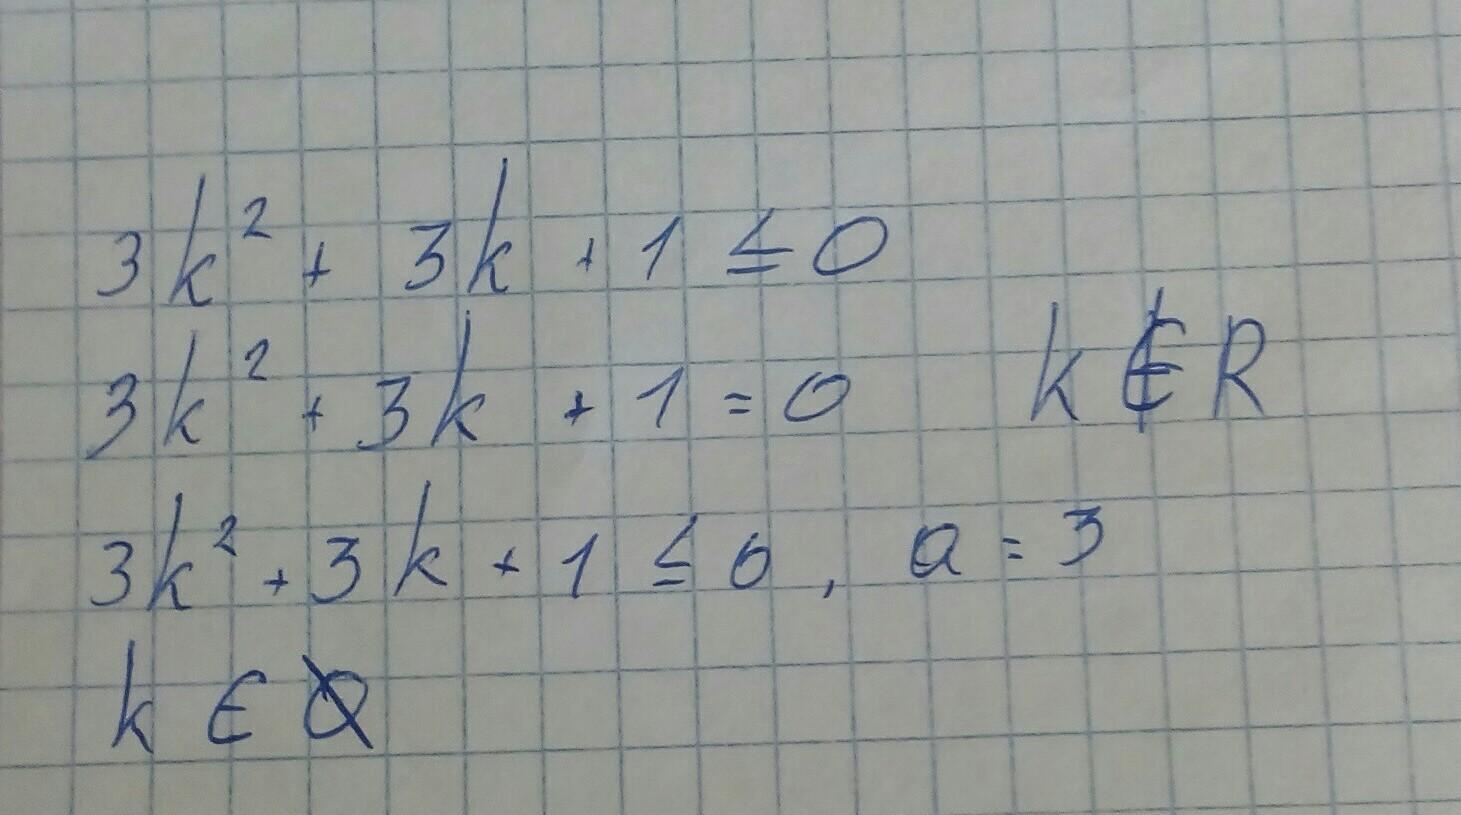 3k² + 3k + 1 ≤ 0
3k² + 3k + 1 = 0 k ∉ R
3k² + 3k + 1 ≤ 0, a = 3
k ∈ ∅